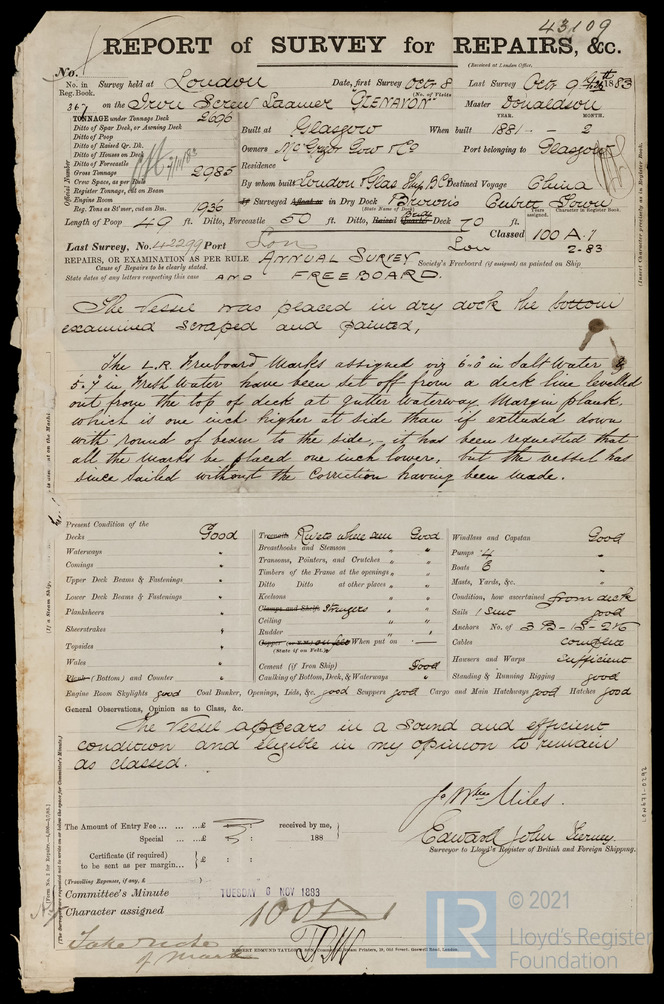 43109
REPORT of SURVEY for REPAIRS, &c.
(Received at London Office,
No. in Reg. Book. Survey held at London Date, first Survey Octr 8 Last Survey Octr 9 1883
(No. of Visits
367 on the Iron Screw Steamer "GLENAVON" Master Donaldson
TONNAGE under Tonnage Deck 2696
YEAR. MONTH.
Ditto of Spar Deck, or Awning Deck
Built at Glasgow When built 1881 - 2
Ditto of Poop
Ditto of Raised Qr. Dk.
Owners McGregor Gow & Co Port belonging to Glasgow
Ditto of Houses on Deck
Ditto of Forecastle
Residence
Gross Tonnage 2985
Crew Space, as per Rule
By whom built London & Glas Destined Voyage China
Register Tonnage, cut on Beam
Engine Room
Surveyed Afloat or in Dry Dock
Reg. Tons as St'mer, cut on Bm. 1936
Official Number
Length of Poop 49 ft. Ditto, Forecastle 50 ft. Ditto, Raised Quarter Deck 70 ft.
Years assigned. Character in Register Book.
Classed 100 A.1
2-83
Last Survey, No. 42299 Port Lon
Lon
REPAIRS, OR EXAMINATION AS PER RULE ANNUAL SURVEY
Society's Freeboard (if assigned) as painted on Ship
Cause of Repairs to be clearly stated.
State dates of any letters respecting this case AND FREEBOARD.
The Vessel was placed in dry dock the bottom
examined scraped and painted,
The L.R. Freeboard Marks assigned viz 6.0 in Salt Water &
5.7 in Fresh Water have been set off from a deck line levelled
out from the top of deck at gutter waterway margin plank,
which is one inch higher at side than if extended down
with round of beam to the side, - it has been requested that
all the marks be placed one inch lower, but the vessel has
since sailed without the correction having been made.
Present Condition of the
Decks Good
Waterways "
Comings "
Upper Deck Beams & Fastenings "
Lower Deck Beams & Fastenings "
Planksheers "
Sheerstrakes "
Topsides "
Wales "
Plank (Bottom) and Counter "
Treenails Rivets where seen Good
Breasthooks and Stemson " "
Transoms, Pointers, and Crutches " "
Timbers of the Frame at the openings " "
Ditto Ditto at other places " "
Keelsons " "
Clamps and Shelfs Stringers "
Ceiling "
Rudder "
Copper (or Y.M.) When put on
(State if on Felt.)
Cement (if Iron Ship) Good
Caulking of Bottom, Deck, & Waterways "
Windlass and Capstan Good
Pumps 4 "
Boats 6 "
Masts, Yards, &c. "
Condition, how ascertained from deck
Sails 1 Suit good
Anchors No. of 3 B - 1 S - 2 K
Cables complete
Hawsers and Warps sufficient
Standing & Running Rigging good
Engine Room Skylights good Coal Bunker, Openings, Lids, &c. good Scuppers good Cargo and Main Hatchways good Hatches good
General Observations, Opinion as to Class, &c.
The Vessel appears in a sound and efficient
condition and eligible in my opinion to remain
as classed.
Jo Wm Miles.
Edward John Tierney
Surveyor to Lloyd's Register of British and Foreign Shipping.
The Amount of Entry Fee ... ... ...£ : : received by me,
Special ... ...£ : : 188
Certificate (if required) to be sent as per margin... £ : :
(Travelling Expenses, if any, £ )
Committee's Minute TUESDAY 6 NOV 1883
Character assigned 100 A 1
Take note
of mark
ROBERT EDMUND TAYLOR Printers, 19, Old Street, Goswell Road, London.
(Insert Character precisely as in Register Book.)
(The Surveyors are requested not to write on or below the space for Committee's Minute.)
LON671-0292
LR
© 2021
Lloyd's Register
Foundation